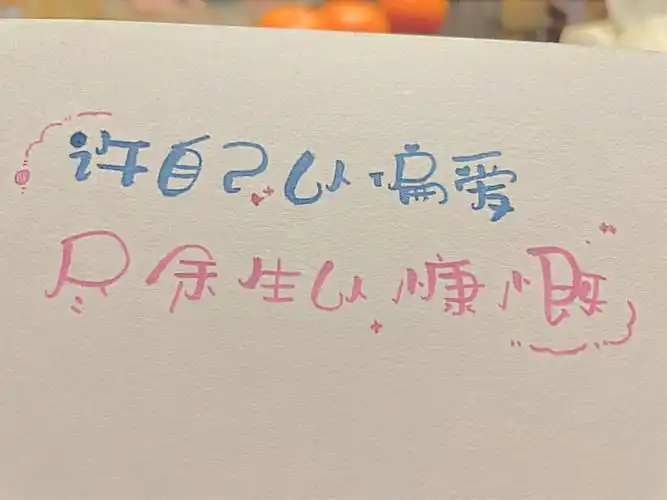 许自己以偏爱
尽余生以慷慨